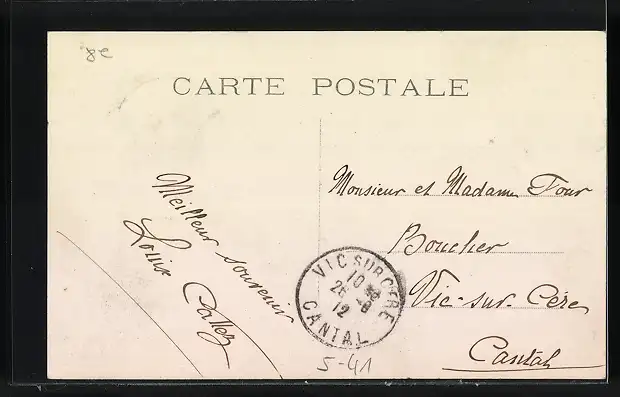 8e
CARTE POSTALE
Meilleur souvenir
Louise
Monsieur et Madame Tour
Boucher
Vic-sur-Cère
Cantal
VIC SUR CERE
10
25 -8
12
CANTAL
5-41